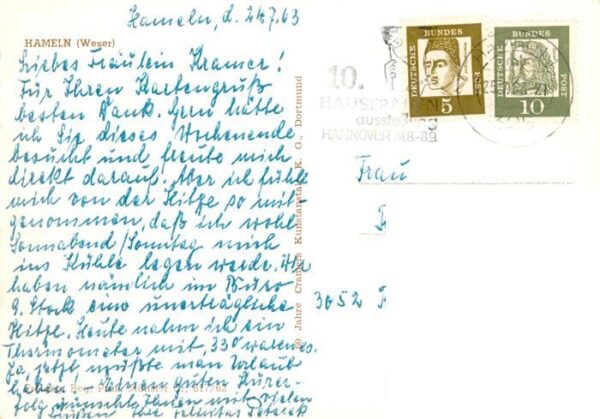 Hameln, d. 24.7.63
HAMELN (Weser)
Liebes Fräulein Kramer!
Für Ihren Kartengruß
besten Dank. Gern hätte
ich Sie dieses Wochenende
besucht und freute mich
direkt darauf. Aber ich fühle
mich von der Hitze so mit-
genommen, daß ich wohl
Sonnabend/Sonntag mich
ins Kühle legen werde. Wir
haben nämlich im Büro
9. Stock eine unerträgliche
Hitze. Heute nahm ich ein
Thermometer mit, 33° waren es.
Ja, jetzt müßte man Urlaub
haben. – Einen guten Kurer-
folg wünscht Ihnen mit vielen
Grüßen Ihre Felicitas
Jahre Cramers Kunstanstalt K. G., Dortmund
DEUTSCHE BUNDES POST
5
DEUTSCHE BUNDES POST
10
10.
HAUSFRAUEN
ausstellung
HANNOVER 31.8.-8.9.
Frau
3052